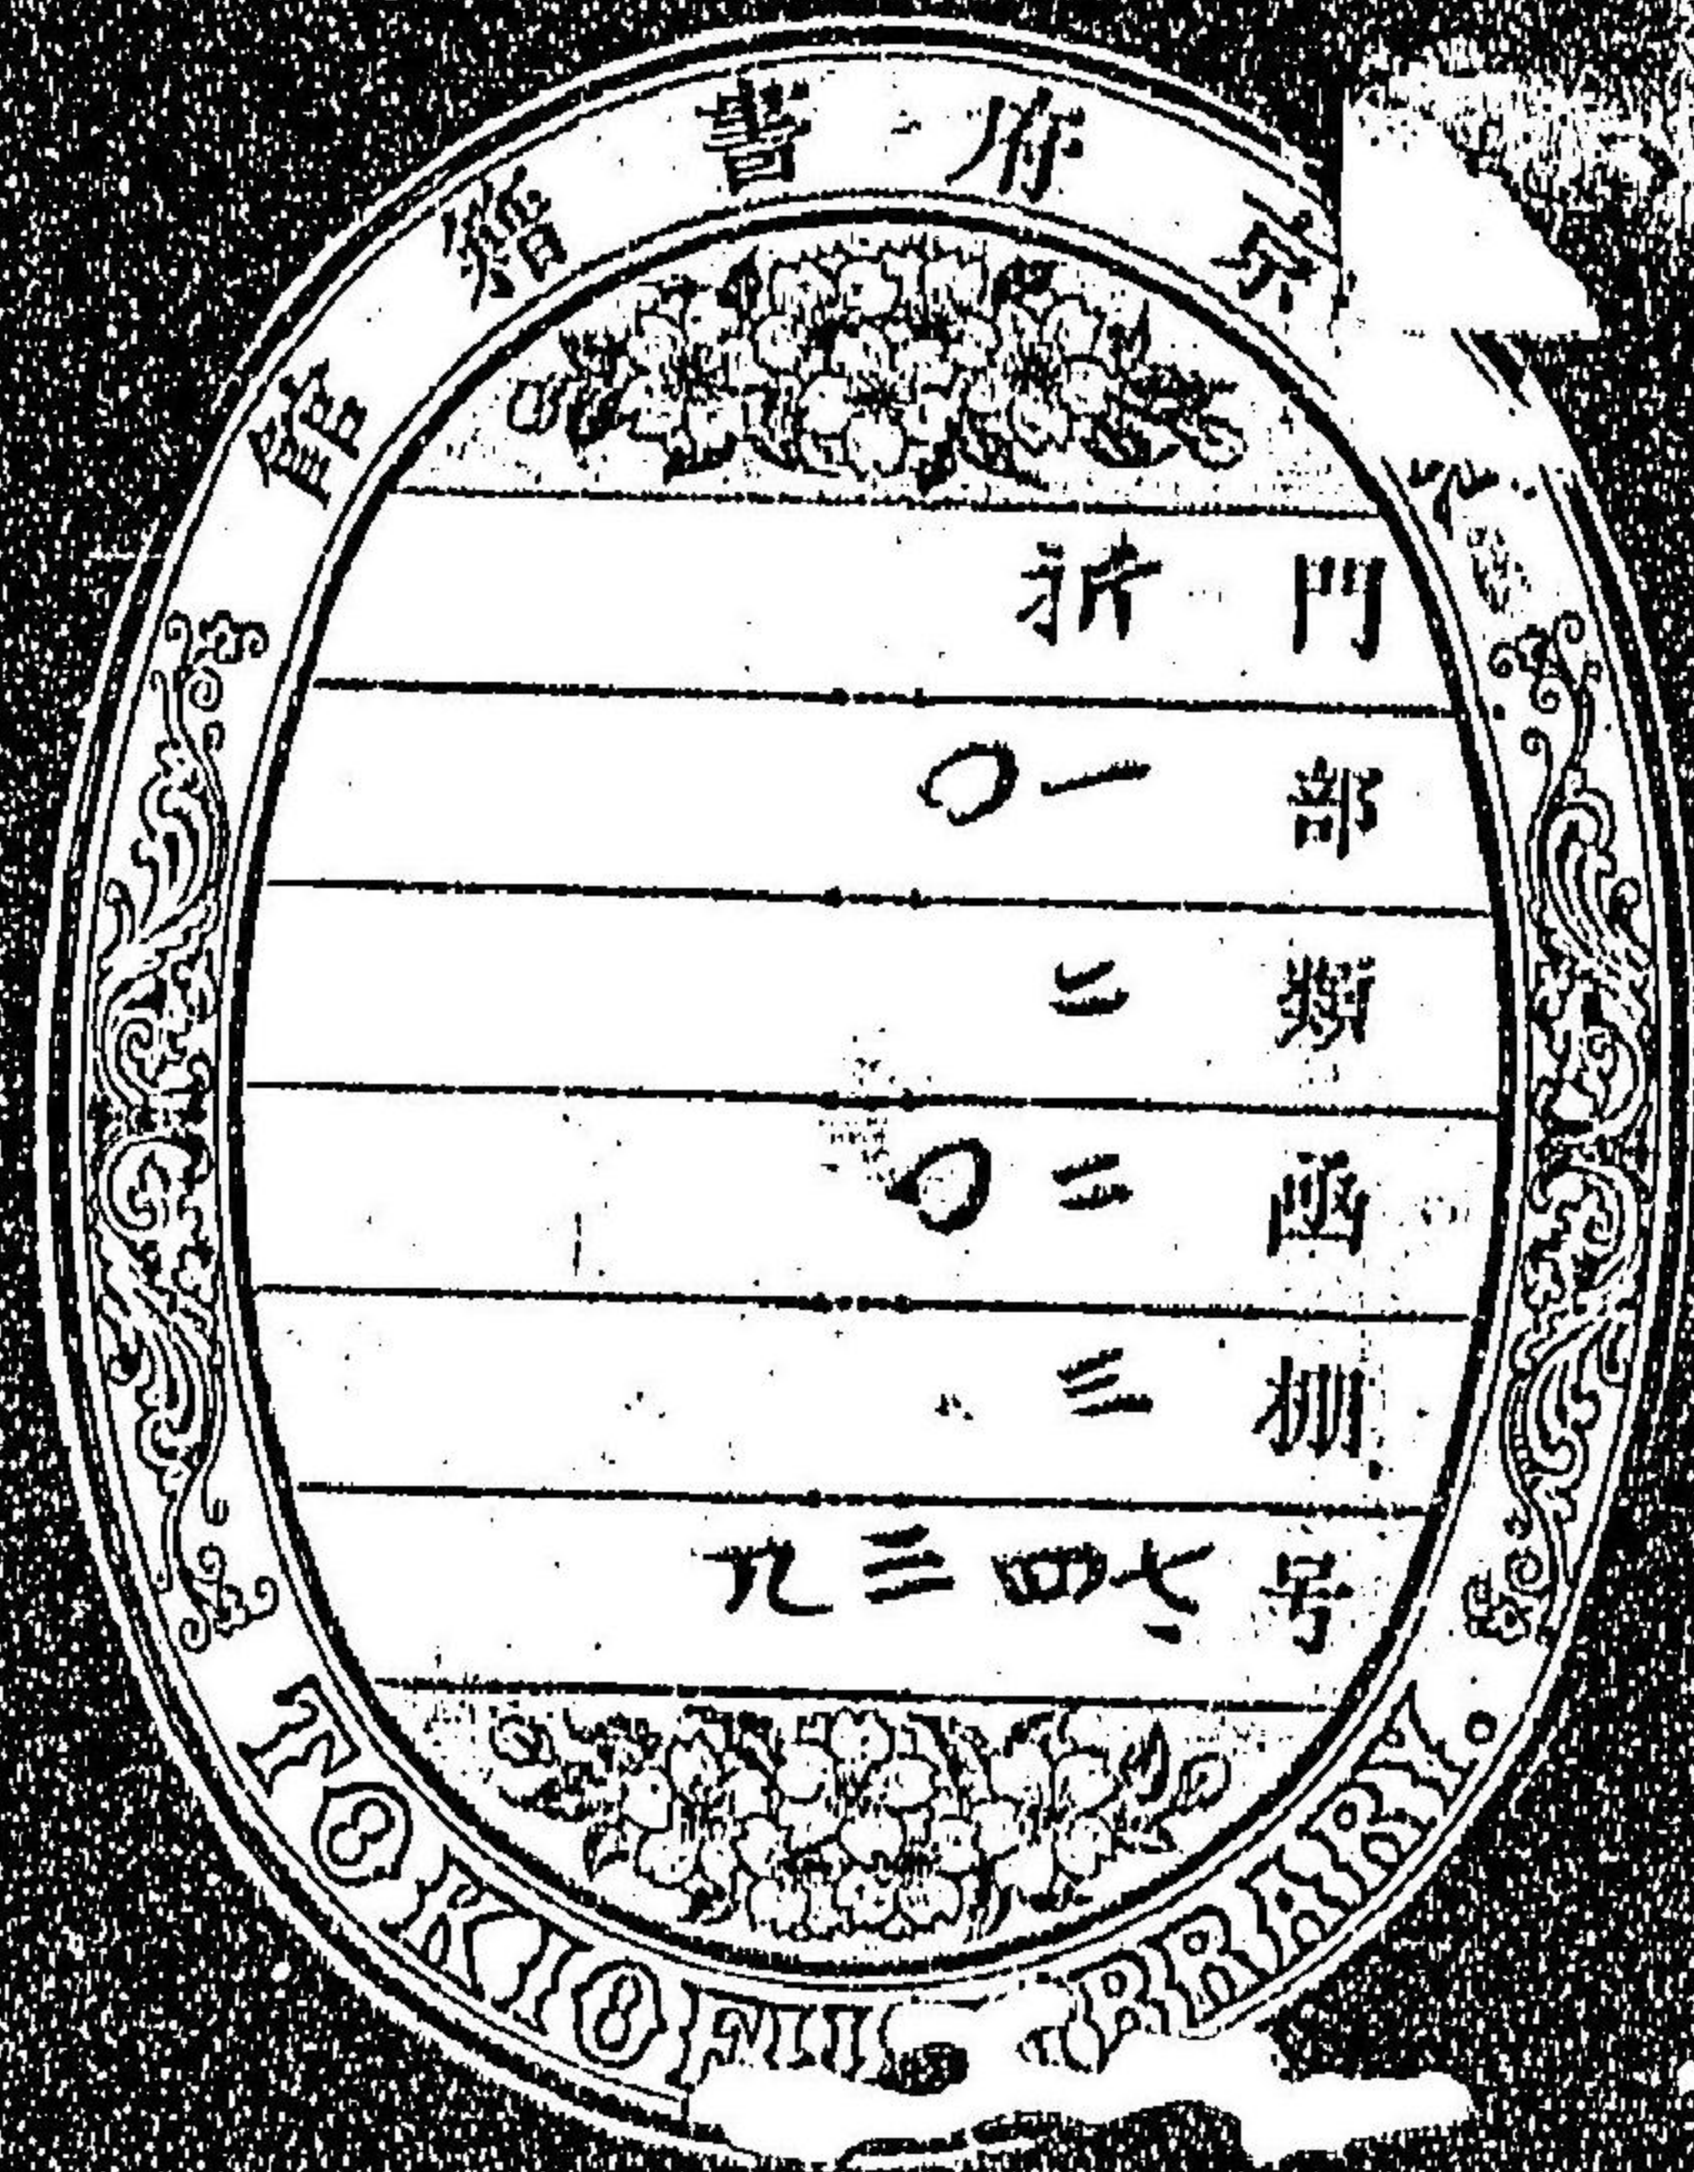 京府書籍館
門 新
部 一〇
類 二
函 二〇
册 三
号 七四三九
TOKIO FU LIBRARY.